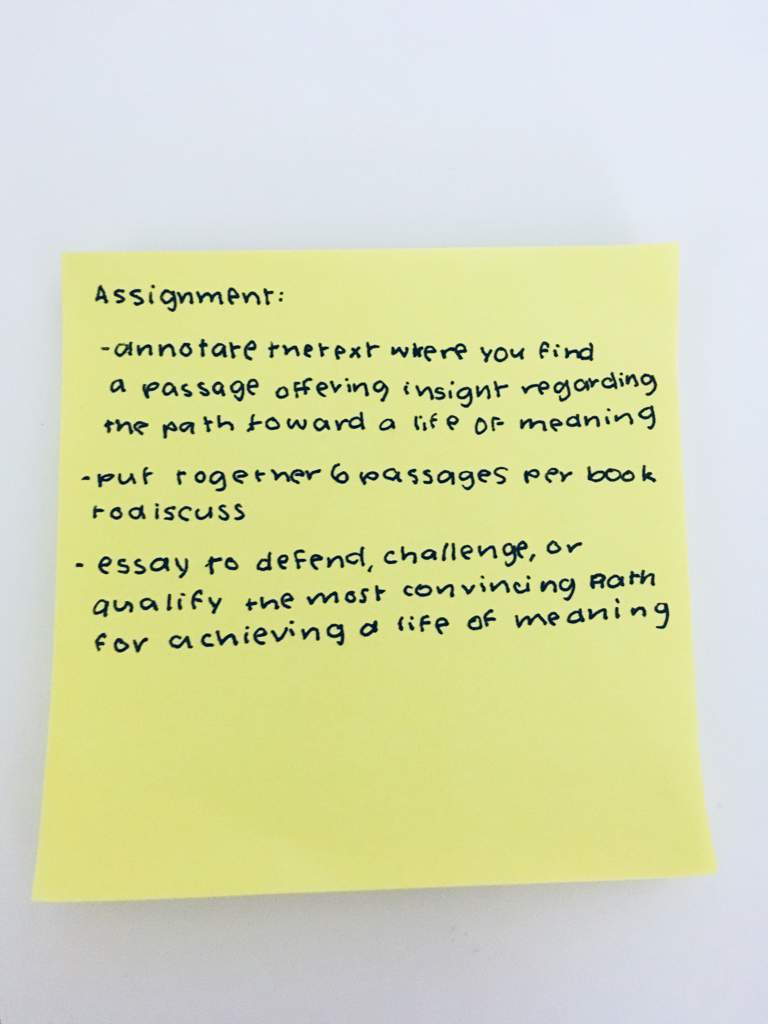 Assignment:
-annotate the text where you find
a passage offering insight regarding
the path toward a life of meaning
-put together 6 passages per book
to discuss
- essay to defend, challenge, or
qualify the most convincing path
for achieving a life of meaning